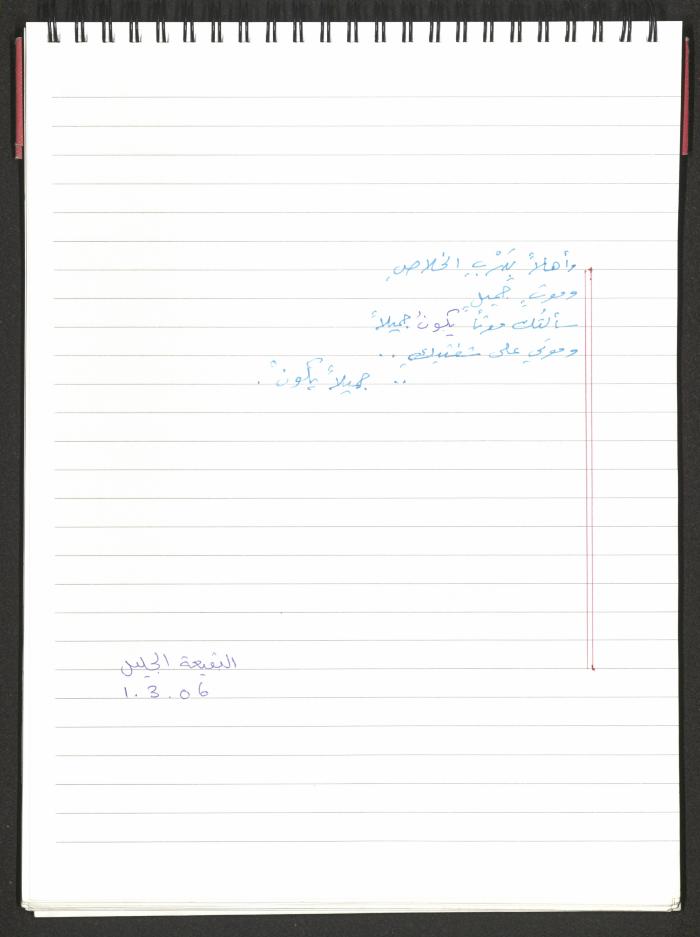 وأهلاً بِكَرْبِ الخلاصِ
وموتٍ جميلٍ
سألتُك موتاً يكونُ جميلاً
وموتي على شفتيكِ ..
.. جميلاً يكونْ .
البقيعة الجليل
1.3.06